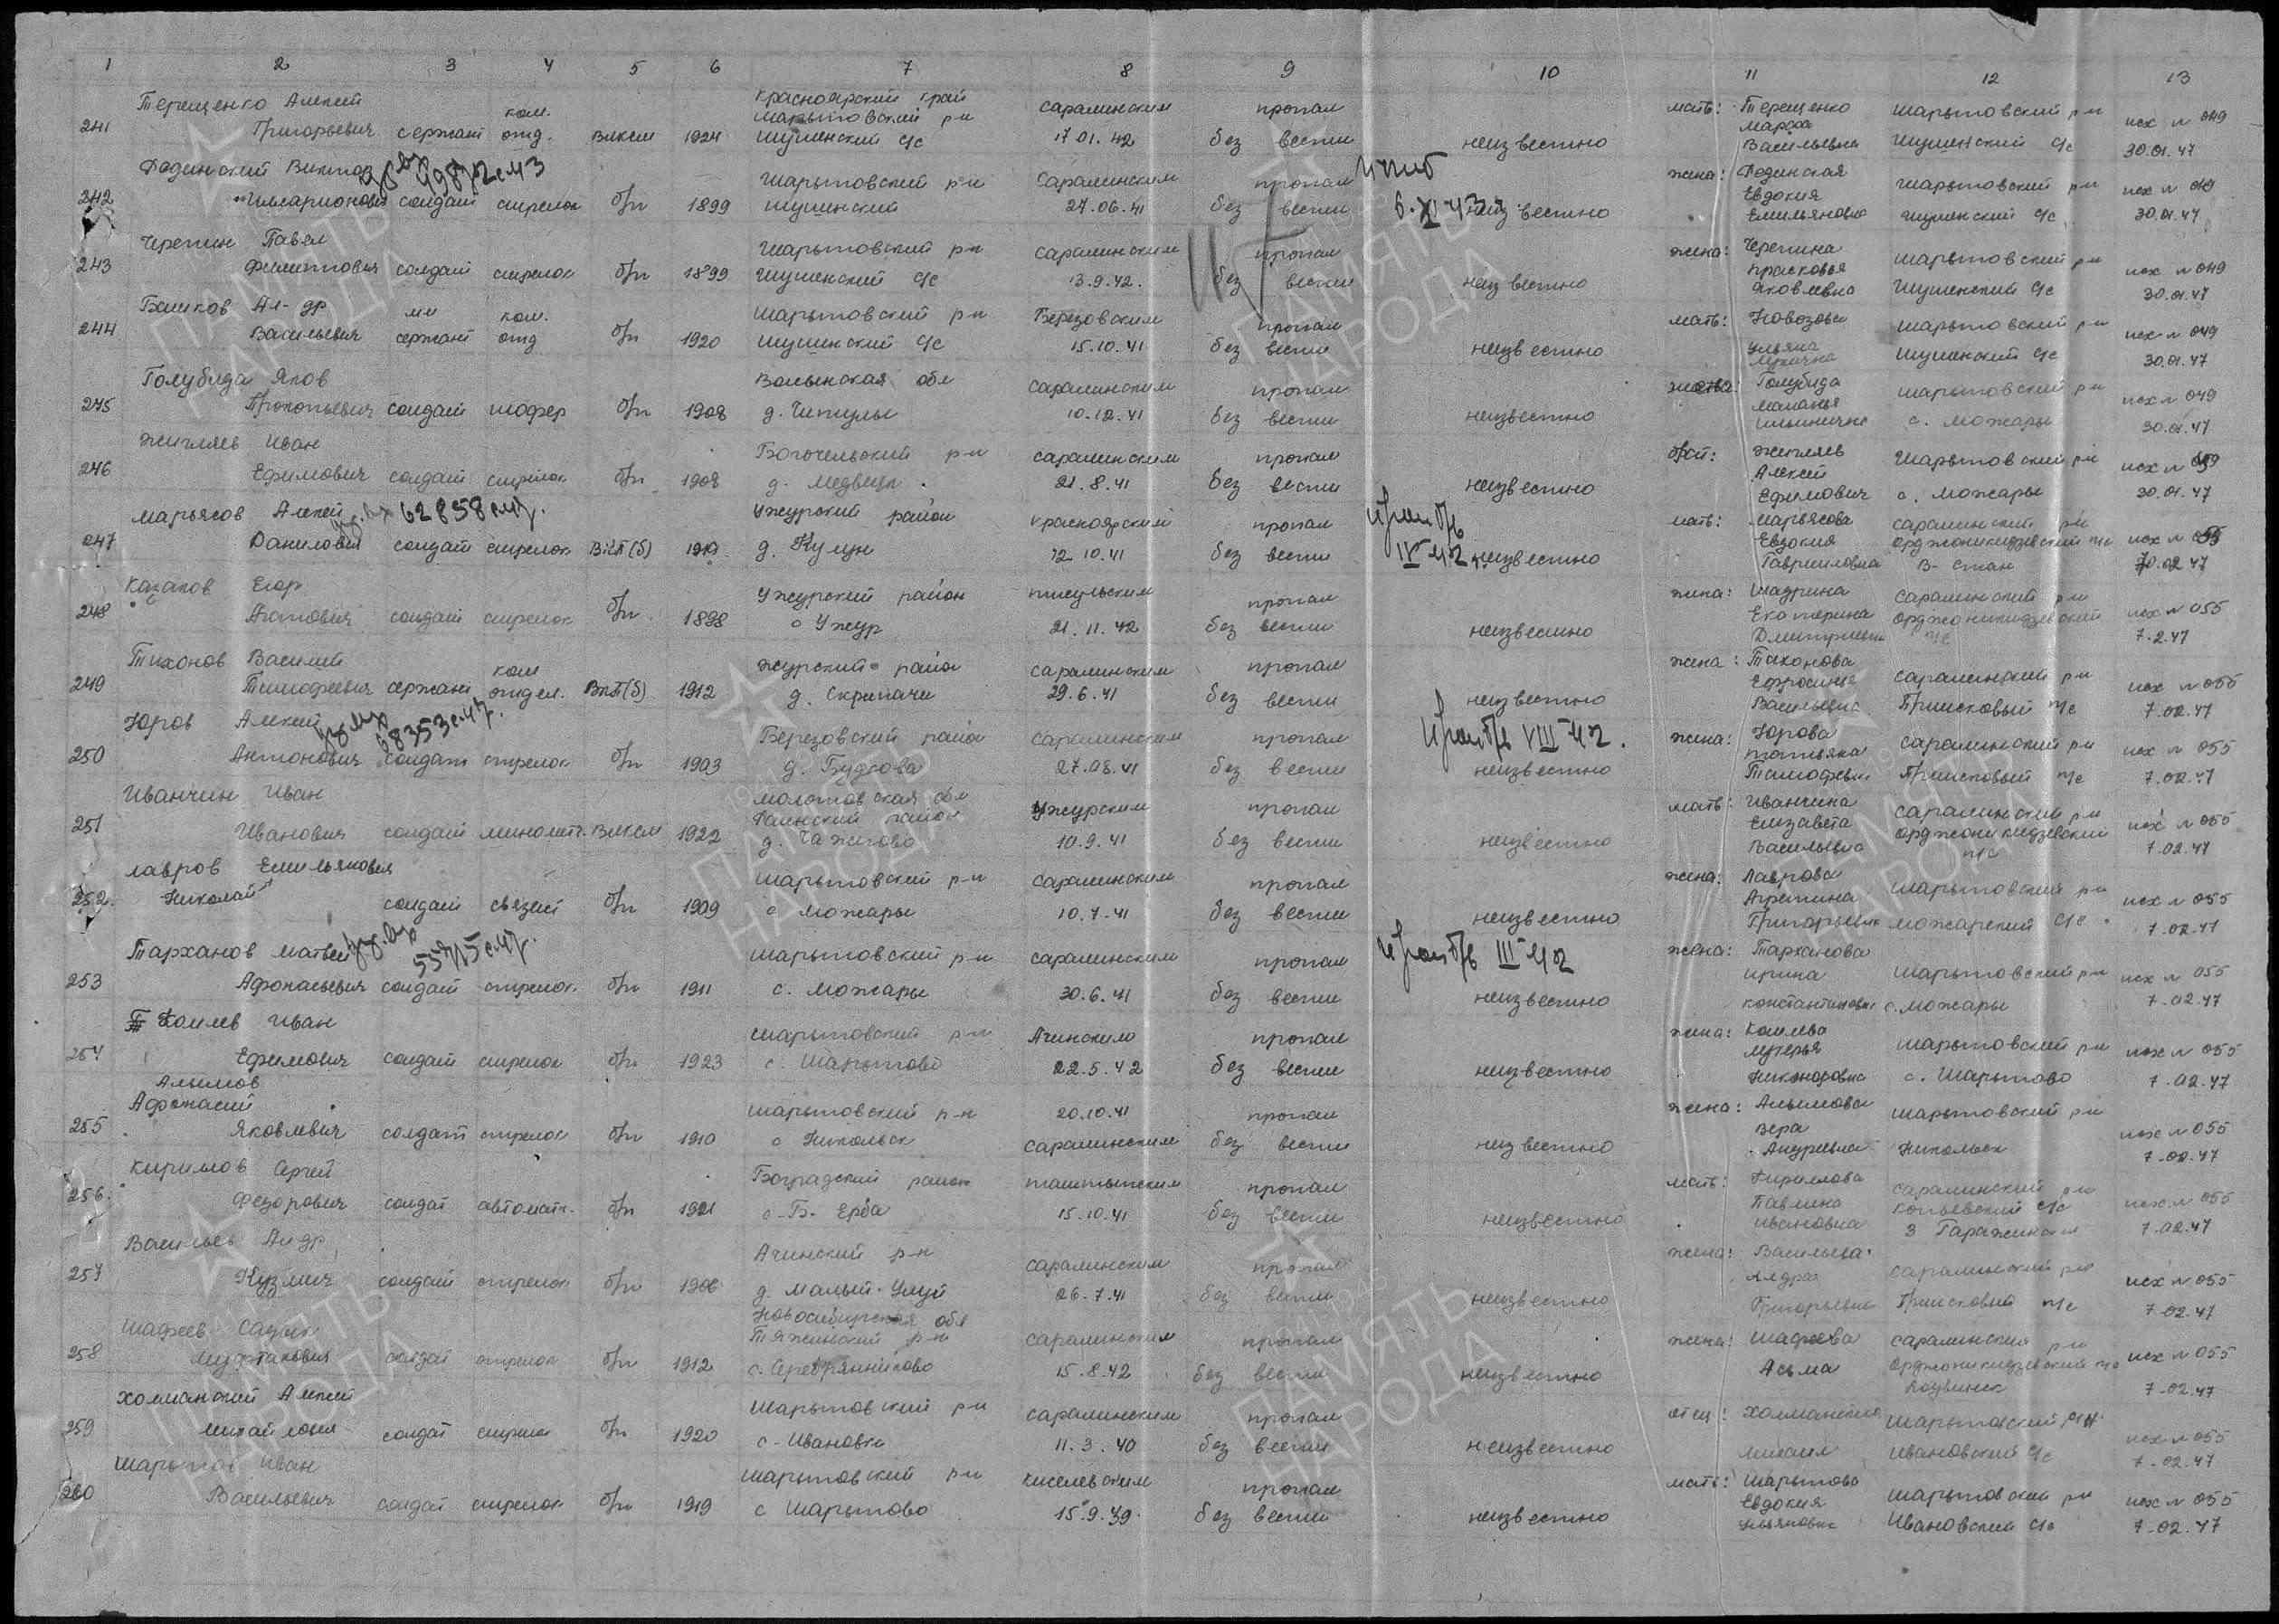 1 2 3 4 5 6 7 8 9 10 11 12 13
Терещенко Алексей ком. Красноярский край Саралинским пропал мать: Терещенко Шарыповский р-н исх № 049
241 Григорьевич сержант отд. ВЛКСМ 1924 Шарыповский р-н Шушенский с/с 17.01.42 без вести неизвестно Марфа Васильевна Шушенский с/с 30.01.47
Фединский Виктор Шарыповский р-н Саралинским пропал жена: Фединская Шарыповский р-н исх № 049
242 Илларионович солдат стрелок б/п 1899 Шушенский 27.06.41 без вести 6.XI 43 неизвестно Евдокия Емельяновна Шушенский с/с 30.01.47
Черепин Павел Шарыповский р-н Саралинским пропал жена: Черепина Шарыповский р-н исх № 049
243 Филиппович солдат стрелок б/п 1899 Шушенский с/с 13.9.42. без вести неизвестно Прасковья Яковлевна Шушенский с/с 30.01.47
Башков Ал-др мл ком. Шарыповский р-н Березовским пропал мать: Шарыповский р-н исх № 049
244 Васильевич сержант отд б/п 1920 Шушенский с/с 15.10.41 без вести неизвестно Ульяна Шушенский с/с 30.01.47
Голубида Яков Волынская обл Саралинским пропал Голубида Шарыповский р-н исх № 049
245 Прокопьевич солдат шофер б/п 1908 д. 10.12.41 без вести неизвестно Маланья Ильинична с. Можары 30.01.47
Жигляев Иван р-н Саралинским пропал брат: Жигляев Шарыповский р-н исх №
246 Ефимович солдат стрелок б/п 1908 д. 21.8.41 без вести неизвестно Алексей Ефимович с. Можары 30.01.47
Марьясов Алексей 62858 Ужурский район Красноярский пропал мать: Марьясова Саралинский р-н
247 Данилович солдат стрелок ВКП(б) д. Кулун 22.10.41 без вести IV 42 неизвестно Евдокия Гавриловна Орджоникидзевский п/с исх № 055 В-Стан 7.02.47
Казаков Егор Ужурский район пропал жена: Шадрина Саралинский р-н
248 солдат стрелок б/п 1898 с Ужур 21.11.42 без вести неизвестно Екатерина Дмитриевна Орджоникидзевский п/с исх № 055 7.2.47
Тихонов Василий ком Ужурский район Саралинским пропал жена: Тихонова Саралинский р-н исх № 055
249 Тимофеевич сержант отдел. ВКП(б) 1912 д. Скрипачи 29.6.41 без вести неизвестно Ефросинья Васильевна Приисковый п/с 7.02.47
Юров Алексей 68353 Березовский район Саралинским пропал VIII 42. жена: Юрова Саралинский р-н исх № 055
250 Антонович солдат стрелок б/п 1903 д. 27.08.41 без вести неизвестно Приисковый п/с 7.02.47
Иванчин Иван Молотовская обл Ужурским пропал мать: Иванчина Саралинский р-н
251 Иванович солдат миномет. ВЛКСМ 1922 район д. 10.9.41 без вести неизвестно Елизавета Васильевна Орджоникидзевский п/с исх № 055 7.02.47
Лавров Емельянович Шарыповский р-н Саралинским пропал жена: Лаврова Шарыповский р-н исх № 055
252. Николай солдат связист б/п 1909 с Можары 10.7.41 без вести неизвестно Агрепина Григорьевна Можарский с/с 7.02.47
Тарханов Матвей Шарыповский р-н Саралинским пропал III 42 жена: Тарханова Шарыповский р-н исх № 055
253 Афонасьевич солдат стрелок б/п 1911 с. Можары 30.6.41 без вести неизвестно Ирина Константиновна с. Можары 7.02.47
Иван Шарыповский р-н Ачинским пропал жена: Шарыповский р-н исх № 055
254 Ефимович солдат стрелок б/п 1923 с. Шарыпово 22.5.42 без вести неизвестно Никаноровна с. Шарыпово 7.02.47
Алымов
Афонасий Шарыповский р-н 20.10.41 пропал жена: Алымова Шарыповский р-н исх № 055
255 Яковлевич солдат стрелок б/п 1910 с Никольск Саралинским без вести неизвестно Вера Андреевна Никольск 7.02.47
Кирилов Сергей Боградский район Таштыпским пропал мать: Кирилова Саралинский р-н исх № 055
256. Федорович солдат автомат. б/п 1921 с-Б-Ерба 15.10.41 без вести неизвестно Павлина Ивановна Копьевский с/с 7.02.47
Васильев Ал-др Ачинский р-н Саралинским пропал жена: Васильева Саралинский р-н исх № 055
257 Кузмич солдат стрелок б/п 1906 д. Малый-Улуй 26.7.41 без вести неизвестно Григорьевна Приисковый п/с 7.02.47
Шафеев Новосибирская обл Саралинским пропал жена: Шафеева Саралинский р-н исх № 055
258 солдат стрелок б/п 1912 Тяжинский р-н с. 15.8.42 без вести неизвестно Асьма Орджоникидзевский п/с 7.02.47
Холманский Алексей Шарыповский р-н Саралинским пропал отец: Холманский Шарыповский р-н исх № 055
259 Михайлович солдат стрелок б/п 1920 с-Ивановка 11.3.40 без вести неизвестно Михаил Ивановский с/с 7.02.47
Шарыпов Иван Шарыповский р-н Киселевским пропал мать: Шарыпова Шарыповский р-н исх № 055
260 Васильевич солдат стрелок б/п 1919 с Шарыпово 15.9.39. без вести неизвестно Евдокия Ивановский с/с 7.02.47